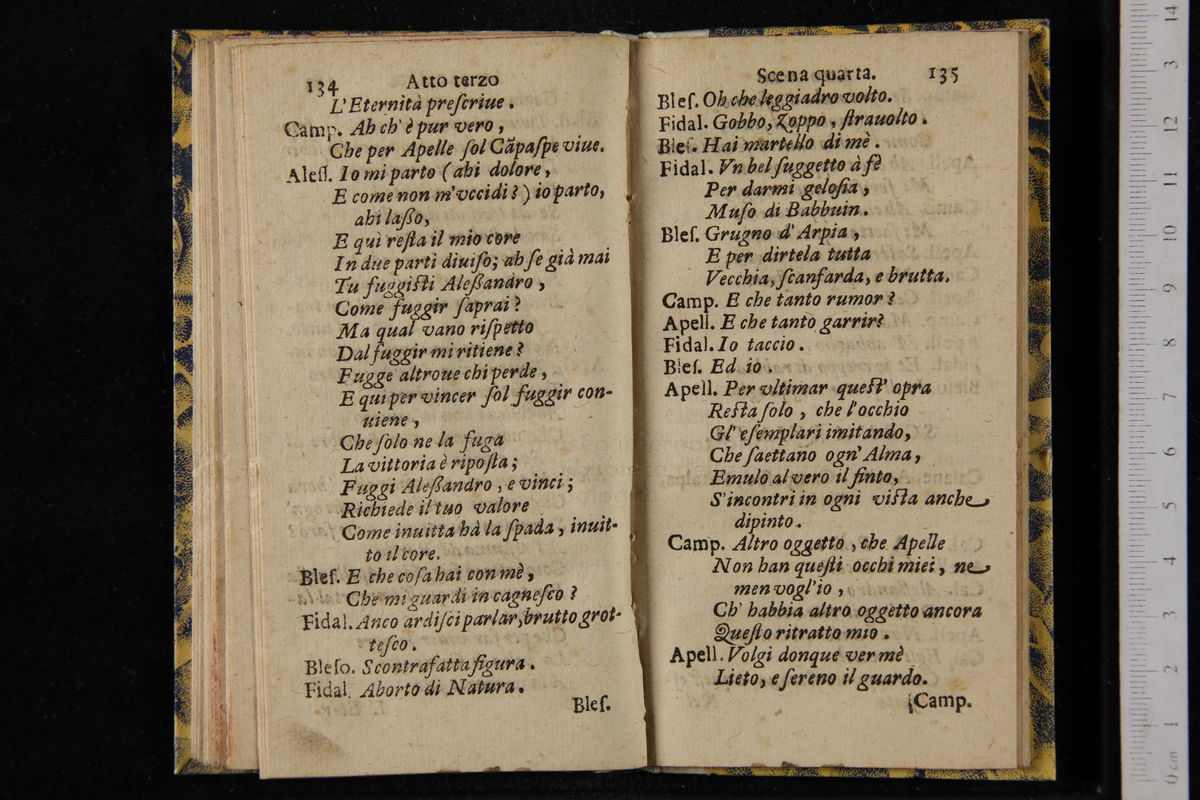 134 Atto terzo
L'Eternità preſcriue.
Camp. Ah ch'è pur vero,
Che per Apelle ſol Cãpaſpe viue.
Aleſſ. Io mi parto (ahi dolore,
E come non m'vccidi?) io parto,
ahi laßo,
E quì reſta il mio core
In due parti diuiſo; ah ſe già mai
Tu fuggiſti Aleßandro,
Come fuggir ſaprai?
Ma qual vano riſpetto
Dal fuggir mi ritiene?
Fugge altroue chi perde,
E qui per vincer ſol fuggir con-
uiene,
Che ſolo ne la fuga
La vittoria è ripoſta;
Fuggi Aleßandro, e vinci;
Richiede il tuo valore
Come inuitta hà la ſpada, inuit-
to il core.
Bleſ. E che coſa hai con mè,
Che mi guardi in cagneſco?
Fidal. Anco ardiſci parlar, brutto grot-
teſco.
Bleſo. Scontrafatta figura.
Fidal. Aborto di Natura.
Bleſ.
Scena quarta. 135
Bleſ. Oh che leggiadro volto.
Fidal. Gobbo, Zoppo, ſtrauolto.
Bleſ. Hai martello di mè.
Fidal. Vn bel ſuggetto à fè
Per darmi geloſia,
Muſo di Babbuin.
Bleſ. Grugno d'Arpia,
E per dirtela tutta
Vecchia, ſcanfarda, e brutta.
Camp. E che tanto rumor?
Apell. E che tanto garrir?
Fidal. Io taccio.
Bleſ. Ed io.
Apell. Per vltimar queſt' opra
Reſta ſolo, che l'occhio
Gl' eſemplari imitando,
Che ſaettano ogn' Alma,
Emulo al vero il finto,
S'incontri in ogni viſta anche
dipinto.
Camp. Altro oggetto, che Apelle
Non han queſti occhi miei, ne
men vogl'io,
Ch' habbia altro oggetto ancora
Queſto ritratto mio.
Apell. Volgi donque ver mè
Lieto, e ſereno il guardo.
Camp.
0 cm 1 2 3 4 5 6 7 8 9 10 11 12 3 14